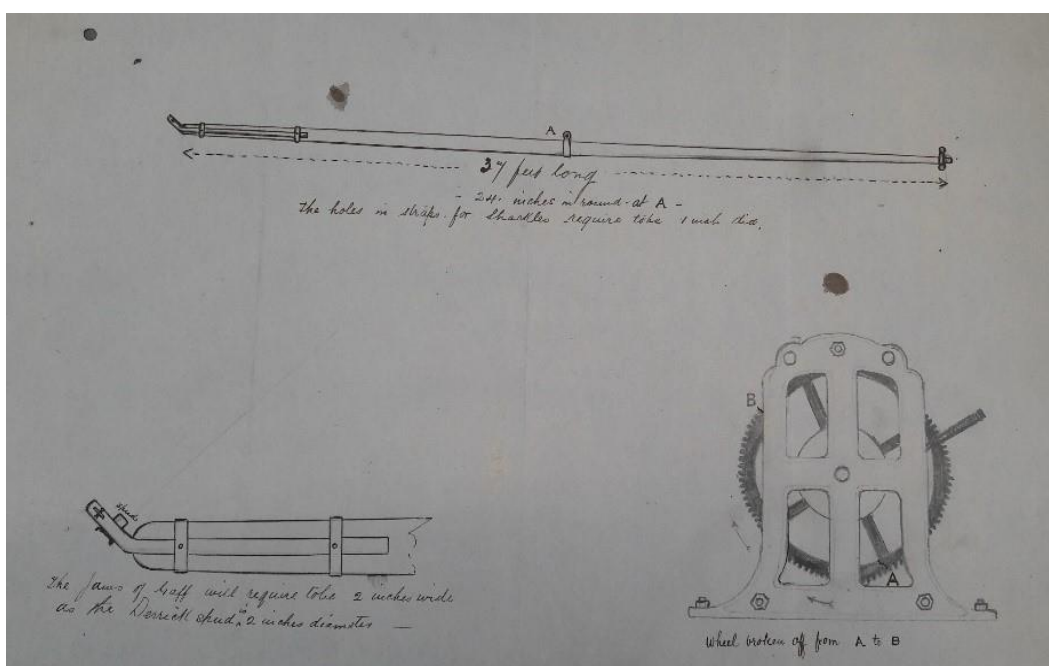 A
37 feet long
- 24. inches in round. at A -
The holes in straps. for Shackles require tobe 1 inch dia.
B
spuds
A
The Jaws of Gaff will require tobe 2 inches wide
as the Derrick spud is 2 inches diameter —
Wheel broken off from A to B